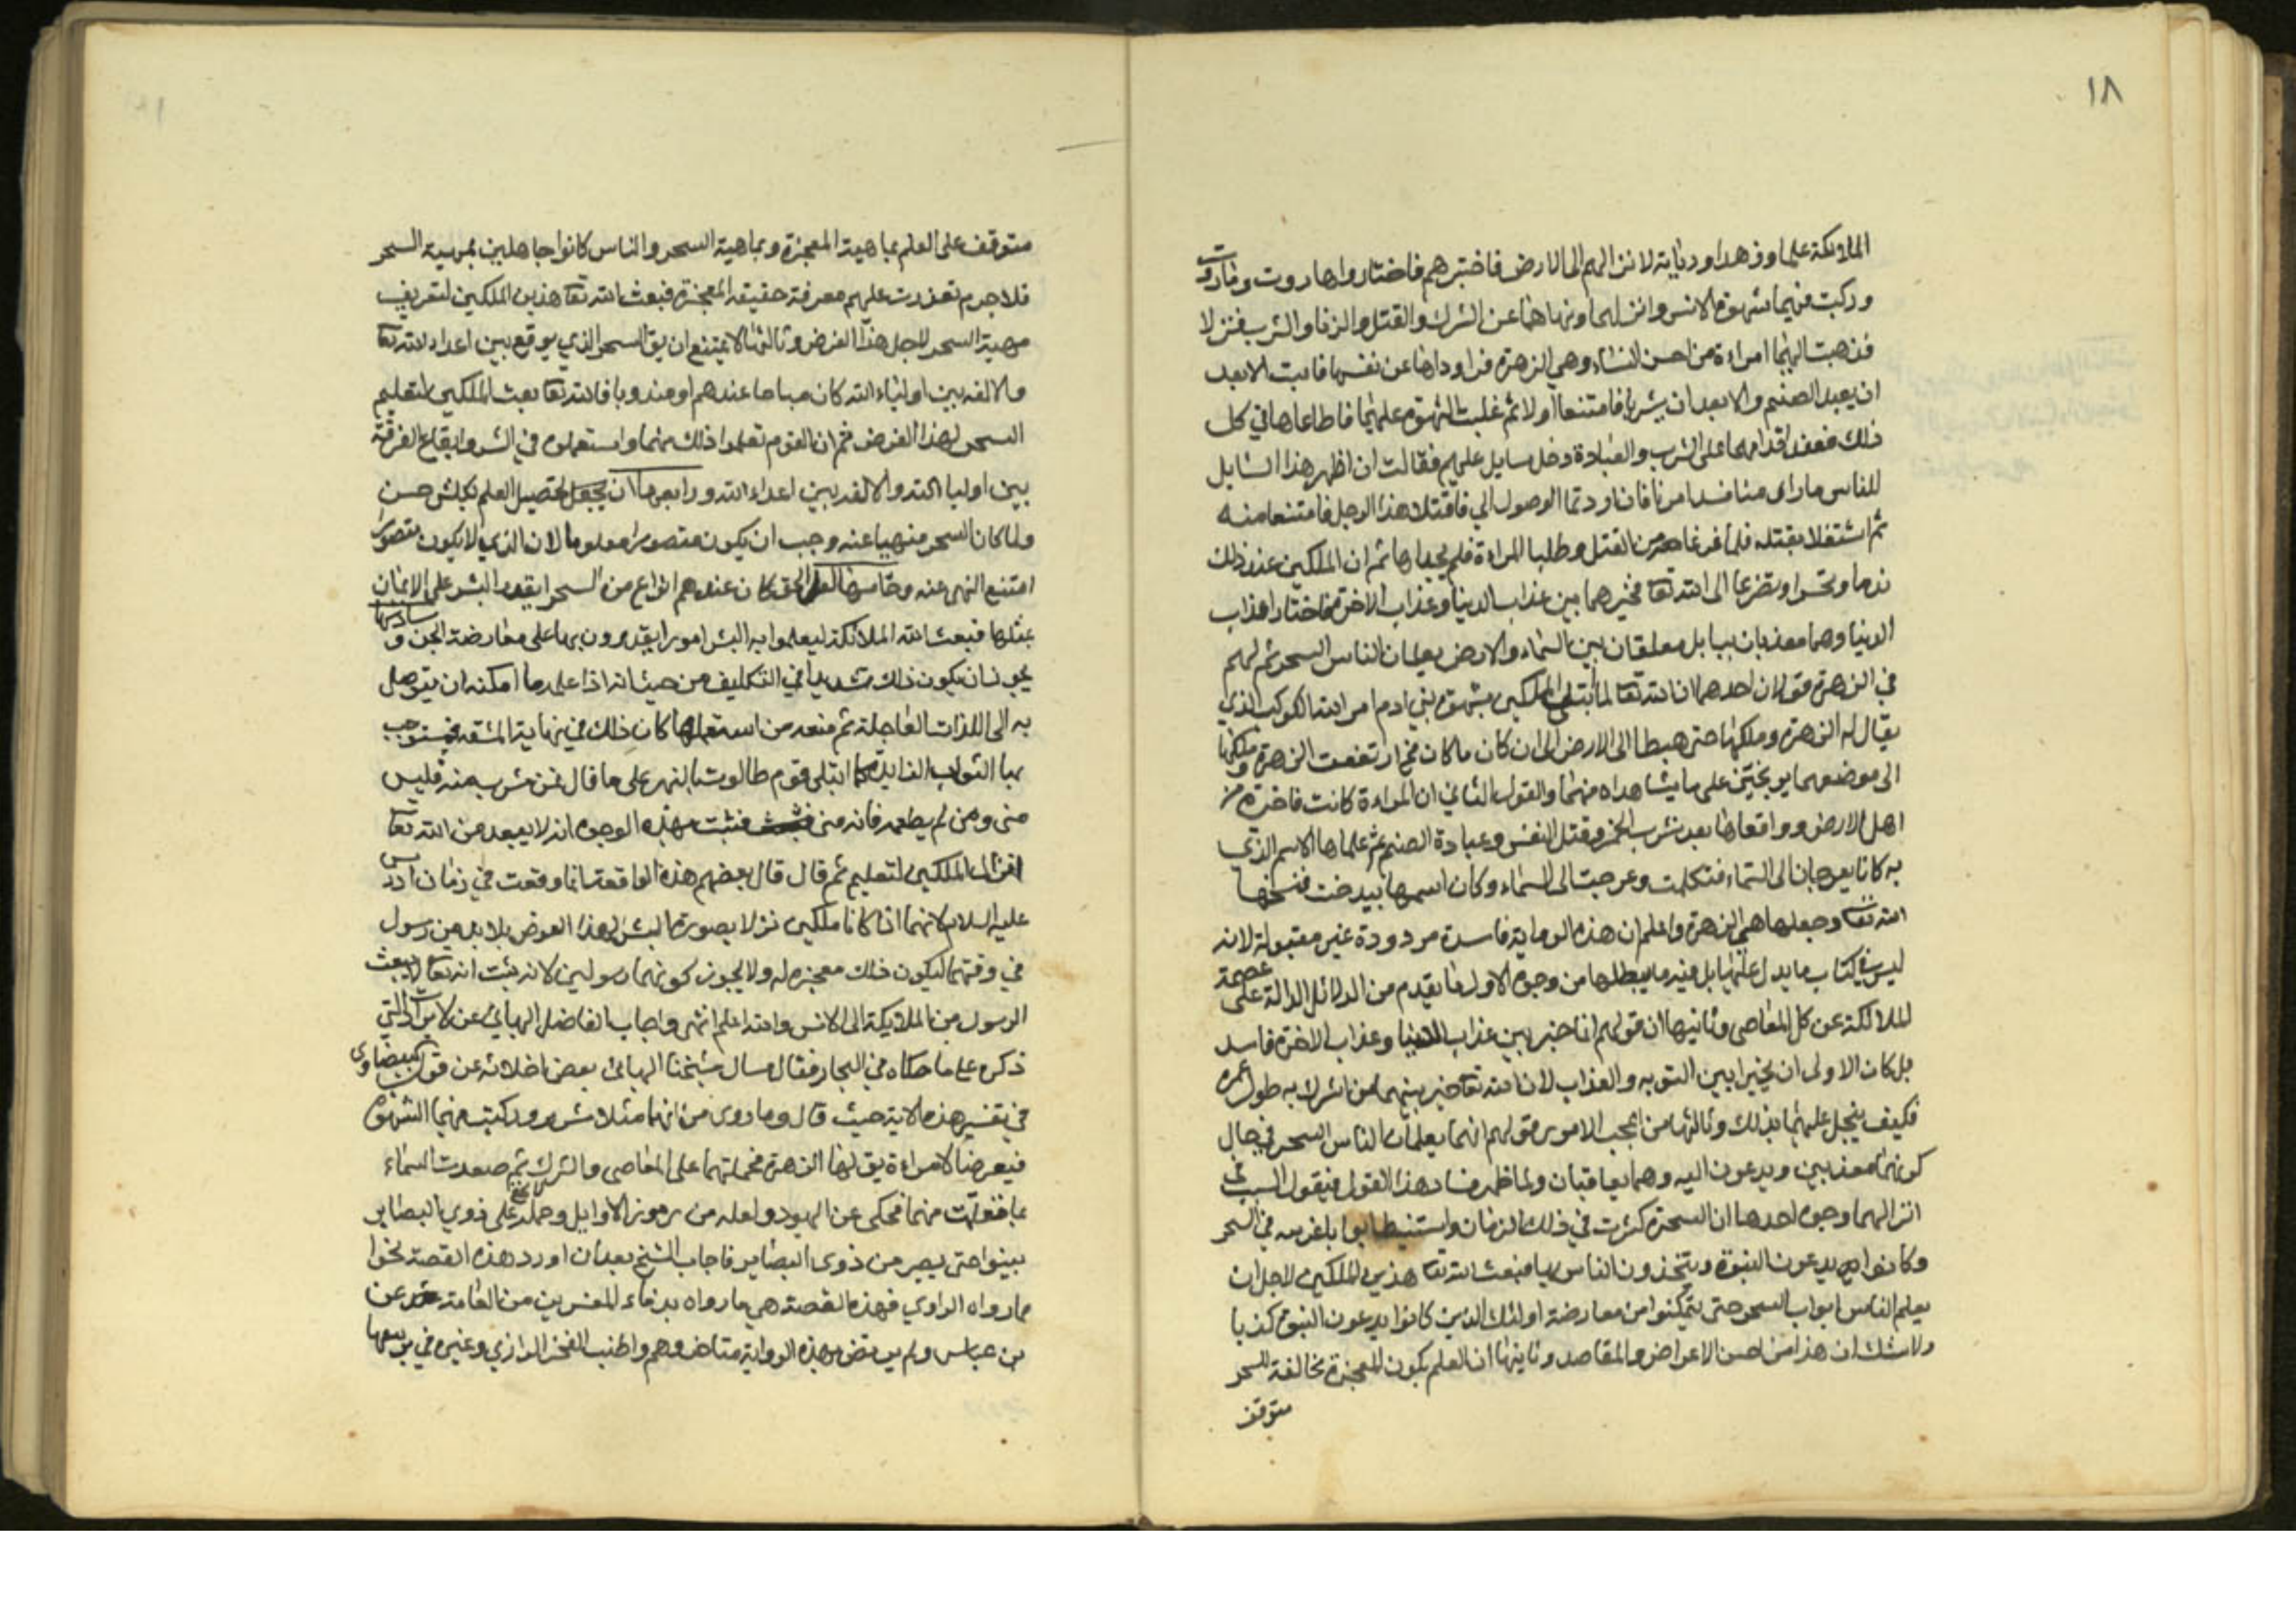 ١٨
الملائكة علما وزهدا وديانة لانزالهم الى الارض فاختبرهم فاختاروا هاروت وماروت
وركبت فيهما شهوة الانس وانزلهما ونهاهما عن الشرك والقتل والزنا والشرب فنزلا
فذهبت اليهما امراءة من احسن النساء وهي الزهرة فراوداها عن نفسها فابت الا بعد
ان يعبد الصنم والا بعد ان يشربا فامتنعا اولا ثم غلبت الشهوة عليهما فاطاعاها في كل
ذلك فعند اقدامهما على الشرب والعبادة دخل سايل عليهم فقالت ان اظهر هذا السايل
للناس ما راى منا فسد امرنا فان اردتما الوصول الي فاقتلا هذا الرجل فامتنعا منه
ثم اشتغلا بقتله فلما فرغا من القتل وطلبا المراءة فلم يجداها ثم ان الملكين عند ذلك
ندما وتحسرا وتضرعا الى الله تعا فخيرهما بين عذاب الدنيا وعذاب الاخرة فاختارا عذاب
الدنيا وهما معذبان ببابل معلقان بين السماء والارض يعلمان الناس السحر ثم لهم
في الزهرة قولان احدهما ان الله تعا لما ابتلى الملكين بشهوة بني ادم امر الله الكوكب الذي
يقال له الزهرة وملكها حتى هبطا الى الارض الى ان كان ما كان فح ارتفعت الزهرة وملكها
الى موضعهما موبخين على ما شاهداه منهما والقول الثاني ان المراءة كانت فاجرة من
اهل الارض وواقعاها بعد شرب الخمر وقتل النفس وعبادة الصنم ثم علماها الاسم الذي
به كانا يعرجان الى السماء فتكلمت وعرجت الى السماء وكان اسمها بيدخت فمسخها
الله تعا وجعلها هي الزهرة واعلم ان هذه الرواية فاسدة مردودة غير مقبولة لانه
ليس في كتاب ما يدل عليها بل فيه ما يبطلها من وجوه الاول ما تقدم من الدلائل الدالة على عصمة
الملائكة عن كل المعاصي وثانيها ان قولهم انما خيرا بين عذاب الدنيا وعذاب الاخرة فاسد
بل كان الاولى ان يخيرا بين التوبه والعذاب لان الله تعا خير بينهما من اشرك به طول عمره
فكيف يبخل عليهما بذلك وثالثها من اعجب الامور قولهم انهما يعلمان الناس السحر في حال
كونهما معذبين ويدعون اليه وهما يعاقبان ولما ظهر فساد هذا القول فنقول السبب في
انزالهما وجوه احدها ان السحرة كثرت في ذلك الزمان واستنبطت ابوابا غريبه في السحر
وكانوا يدعون النبوة ويتحدون الناس بها فبعث الله تعا هذين الملكين لاجل ان
يعلم الناس ابواب السحر حتى يتمكنوا من معارضة اولئك الذين كانوا يدعون النبوة كذبا
ولا شك ان هذا من احسن الاعراض والمقاصد وثانيها ان العلم بكون المعجزة مخالفة للسحر
متوقف
متوقف على العلم بماهية المعجزة وبماهية السحر والناس كانوا جاهلين بمهية السحر
فلا جرم تعذرت عليهم معرفة حقيقه المعجزة فبعث الله تعا هذين الملكين لتعريف
مهية السحر لاجل هذا الغرض وثالثها لا يمتنع ان يق السحر الذي يوقع بين اعداء الله تعا
والالفه بين اولياء الله كان مباحا عندهم او مندوبا فالله تعا بعث الملكين لتعليم
السحر لهذا الغرض ثم ان القوم تعلموا ذلك منهما واستعملوه في الشر وايقاع الفرقة
بين اوليا الله والالفه بين اعداء الله ورابعها ان تحصيل العلم بكل شئ حسن
ولما كان السحر منهيا عنه وجب ان يكون متصورا معلوما لان الذي لا يكون متصورا
امتنع النهي عنه وخامسها لعل الجن كان عندهم انواع من السحر لم يقدر البشر على الاتيان
بمثلها فبعث الله الملائكة ليعلموا به البشر امورا يقدرون بها على معارضة الجن وسادسها
يجوز ان يكون ذلك تشديدا في التكليف من حيث انه اذا علمه ما امكنه ان يتوصل
به الى اللذات العاجلة ثم منعه من استعمالها كان ذلك في نهاية المشقه فيستوجب
بها الثواب الزايد كما ابتلى قوم طالوت بالنهر على ما قال فمن شرب منه فليس
مني ومن لم يطعمه فانه مني فثبت بهذه الوجوه انه لا يبعد من الله تعا
انزال الملكين لتعليم ثم قال قال بعضهم هذه الواقعة انما وقعت في زمان ادريس
عليه السلام لانهما اذا كانا ملكين نزلا بصورة البشر لهذا الغرض فلا بد من رسول
في وقتهما ليكون ذلك معجزه له ولا يجوز كونهما رسولين لانه ثبت انه تعا لا يبعث
الرسول من الملايكة الى الانس والله اعلم انتهى واجاب الفاضل البهائي عن الاسرار التي
ذكره على ما حكاه في البحار فقال سال شيخنا البهائي بعض اخلائه عن قول البيضاوي
في تفسير هذه الاية حيث قال وما روى من انهما مثلا بشرين وركبت فيهما الشهوة
فتعرضا لامراءة يق لها الزهرة فحملتهما على المعاصي والشرك ثم صعدت السماء
بما تعلمت منهما فمحكى عن اليهود ولعله من رموز الاوايل وحله لا يخفى على ذوي البصاير
بينوا حتى يصير من ذوى البصاير فاجاب الشيخ بعد ان اورد هذه القصة نحوا
مما رواه الراوي فهذه القصة هي ما رواه قدماء المفسرين من العامة عن
بن عباس ولم يرتض بهذه الرواية متاخروهم واطنب الفخر الرازي وغيره في تزييفها